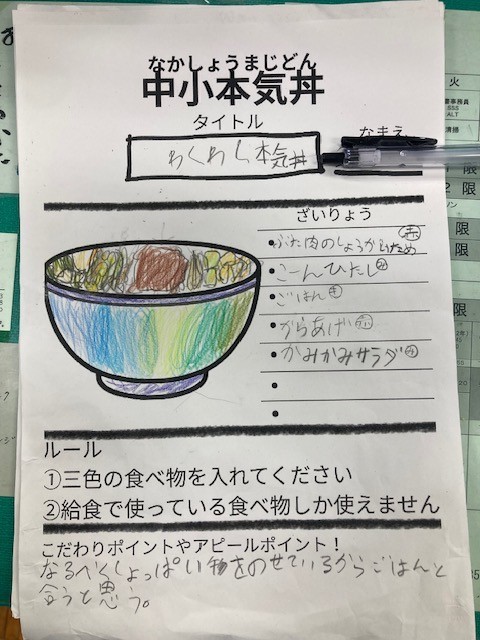 なかしょうまじどん
中小本気丼
タイトル
なまえ
わくわく本気丼
ざいりょう
•ぶた肉のしょうがいため 赤
•こーんひたし
•ごはん き
•からあげ 赤
•かみかみサラダ
•
•
ルール
①三色の食べ物を入れてください
②給食で使っている食べ物しか使えません
こだわりポイントやアピールポイント!
なるべくしょっぱい物をのせているからごはんと
合うと思う。
火
事務員
SSS
ALT
清掃
限
2 限
限
限